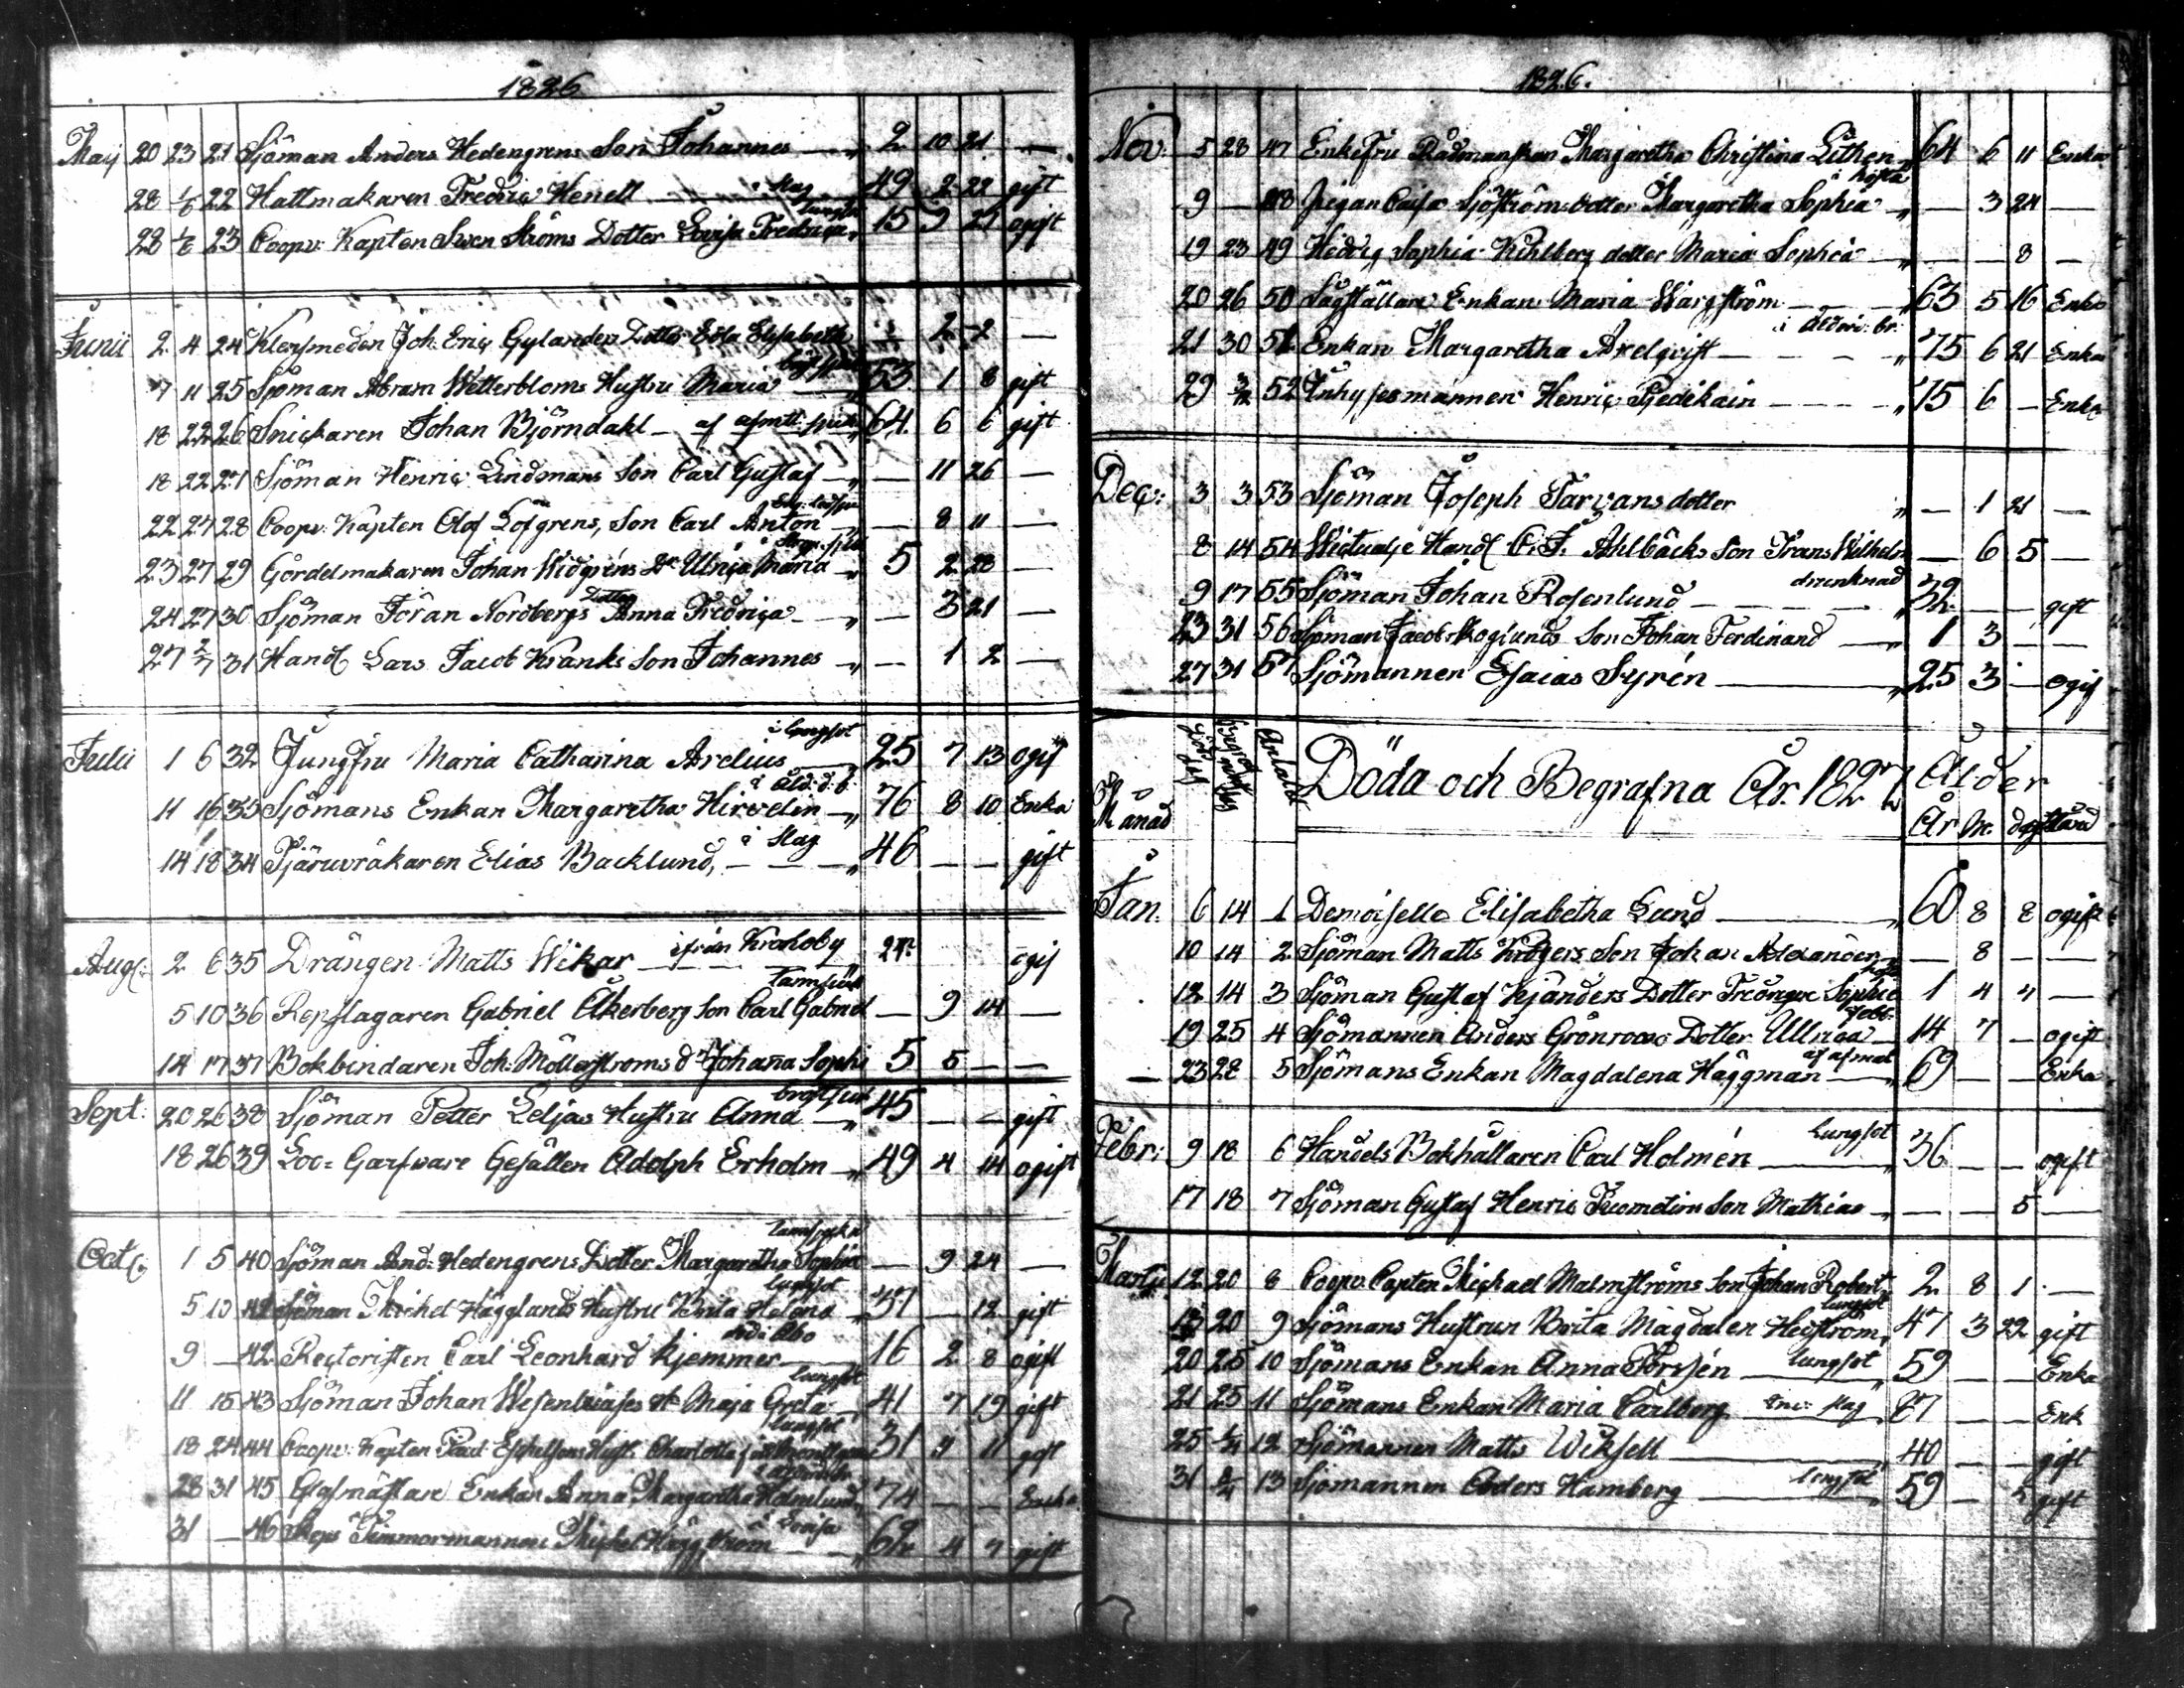 1826
May 20 23 21 Sjöman Anders Hedengrens Son Johannes — 2 10 21 —
28 1/6 22 Hattmakaren Fredric Henell i slag 49 2 22 gift
28 1/6 23 Coopv: Kapten Swen Ströms Dotter Lovisa Fredrica 15 9 27 ogift
Junii 2 4 24 Klensmeden Joh. Eric Gylanders Dotter Elisabeth 2 2 —
7 11 25 Sjöman Abram Wetterbloms Hustru Maria 53 1 8 gift
18 22 26 Snickaren Johan Björndahl — af 64 6 6 gift
18 22 27 Sjöman Henric Lindmans Son Carl Gustaf — — 11 26 —
22 27 28 Coopv. Kapten Olof Löfgrens, Son Carl Anton — — 8 11 —
23 27 29 Gördelmakaren Johan Widgréns Dr Ulrica Maria 5 2 28 —
24 27 30 Sjöman Jöran Nordbergs Dotter Anna Fredrica — — 3 21 —
27 2/7 31 Handl Lars Jacob Kranks Son Johannes — — 1 2 —
Julii 1 6 32 Jungfru Maria Catharina Arelius i lungsot 25 7 13 ogif
11 16 33 Sjömans Enkan Margaretha Hirvelin i Åld: d: b. 76 8 10 Enka
14 18 34 Tjäruvräkaren Elias Backlund, i slag 46 — — gift
Aug: 2 6 35 Drängen Matts Wikar ifrån Krokoby 27 ogif
5 10 36 Repslagaren Gabriel Åkerberg Son Carl Gabriel — 9 14 —
14 17 37 Bokbindaren Joh: Möllerströms dr Johaña Sophi 5 5 — —
Sept: 20 26 38 Sjöman Petter Liljas Hustru Anna bröstsjuk 45 — — gift
18 26 39 Loo: Garfware Gesällen Adolph Erholm 49 4 14 ogift
Oct: 1 5 40 Sjöman And: Hedengrens Dotter Margaretha Sophia — 9 24 —
5 10 Sjöman Michel Hägglunds Hustru Brita Helena lungsot 37 — 12 gift
9 — 42 Rectoristen Carl Leonhard Kjemmer Åbo 16 2 8 ogift
11 15 43 Sjöman Johan Maja Greta lungsot 41 7 19 gift
18 24 44 Coopv: Kapten Hust: Charlotta lungsot 31 11 gift
28 31 45 Glasmästare Enkan Anna Margaretha Holmlund 74 — — Enka
31 — 46 Skeps Timmermannen Michel Häggström i Lovisa 62 4 7 gift
1826.
Nov: 5 28 47 Enkefru Rådmanskan Margaretha Christina Lithen 64 6 11 Enka
9 — 48 Pigan Caisa Sjöströms dotter Margaretha Sophia i hosta — 3 24 —
19 23 49 Hedvig Sophia Kihlberg dotter Maria Sophia — — 8 —
20 26 50 Enkan Maria Wargström 63 5 16 Enka
21 30 51 Enkan Margaretha Axelqvist i Ålderd: br: 75 6 21 Enka
29 3/12 52 Inhysesmannen Henric 75 6 — Enk
Dec: 3 3 53 Sjöman Joseph Tarvans dotter — 1 21 —
8 14 54 Wictualje Handl C. F. Ahlbäcks Son Frans Wilhelm — 6 5 —
9 17 55 Sjöman Johan Rosenlund drunknad 32 — — gift
23 31 56 Sjöman Jacob Skoglunds Son Johan Ferdinand 1 3 — —
27 31 57 Sjömannen Esaias Syrén 25 3 — ogif
Månad Död dag Begrafn dag Antalet Döda och Begrafna År. 1827 Ålder
År M. d
Jan: 6 14 1 Demoiselle Elisabetha Lund 60 8 8 ogift
10 14 2 Sjöman Matts Krögers Son Johan Alexander — 8 — —
12 14 3 Sjöman Gustaf Kjanders Dotter Fredrique Sophie 1 4 4 —
19 25 4 Sjömannen Anders Grönroos Dotter Ullrica febr 14 7 — ogift
23 28 5 Sjömans Enkan Magdalena Häggman 69 — — Enka
Febr: 9 18 6 Handels Bokhållaren Carl Holmén lungsot 36 — — ogift
17 18 7 Sjöman Gustaf Henric Son Mathias — — 5 —
Martii 12 20 8 Coopv. Capten Michael Malmströms Son Johan Robert 2 8 1 —
13 20 9 Sjömans Hustrun Brita Magdalen Hedström lungsot 47 3 22 gift
20 25 10 Sjömans Enkan Anna Forssén lungsot 59 — — Enka
21 25 11 Sjömans Enkan Maria Carlberg slag — — Enk
25 1/4 12 Sjömannen Matts Wiksell 40 — — gift
31 13 Sjömannen Anders Hamberg lungsot 59 — 5 gift